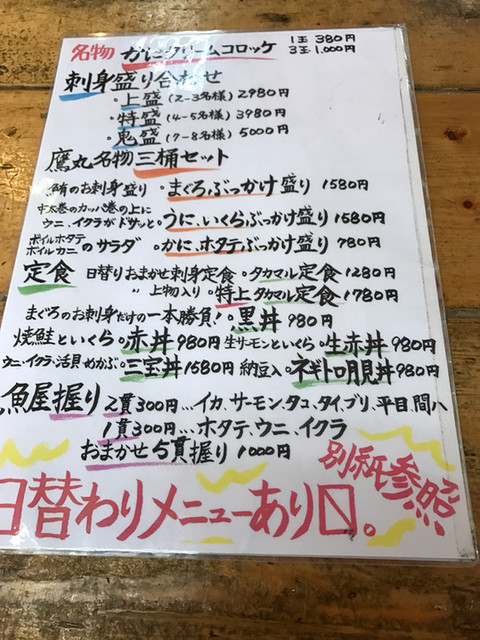 名物 かにクリームコロッケ 1玉 380円
3玉 1,000円
刺身盛り合わせ
・上盛(2-3名様)2980円
・特盛(4-5名様)3980円
・鬼盛(7-8名様)5000円
鷹丸名物三桶セット
鮪のお刺身盛り。まぐろぶっかけ盛り 1580円
中太巻のカッパ巻の上に
ウニ、イクラがドサッと。うに、いくらぶっかけ盛り 1580円
ボイルホタテ
ボイルカニのサラダ。かに、ホタテぶっかけ盛り 780円
定食 日替りおまかせ刺身定食。タカマル定食 1280円
〃 上物入り。特上タカマル定食 1780円
まぐろのお刺身だけの一本勝負!。黒丼 980円
焼鮭といくら。赤丼 980円 生サーモンといくら。生赤丼 980円
ウニ・イクラ・活貝・めかぶ。三宝丼 1580円 納豆入。ネギトロ月見丼 980円
魚屋握り 2貫300円…イカ、サーモン、タコ、タイ、ブリ、平目、間八
1貫300円…ホタテ、ウニ、イクラ
おまかせ5貫握り 1000円
別紙参照
日替わりメニューあり〼。